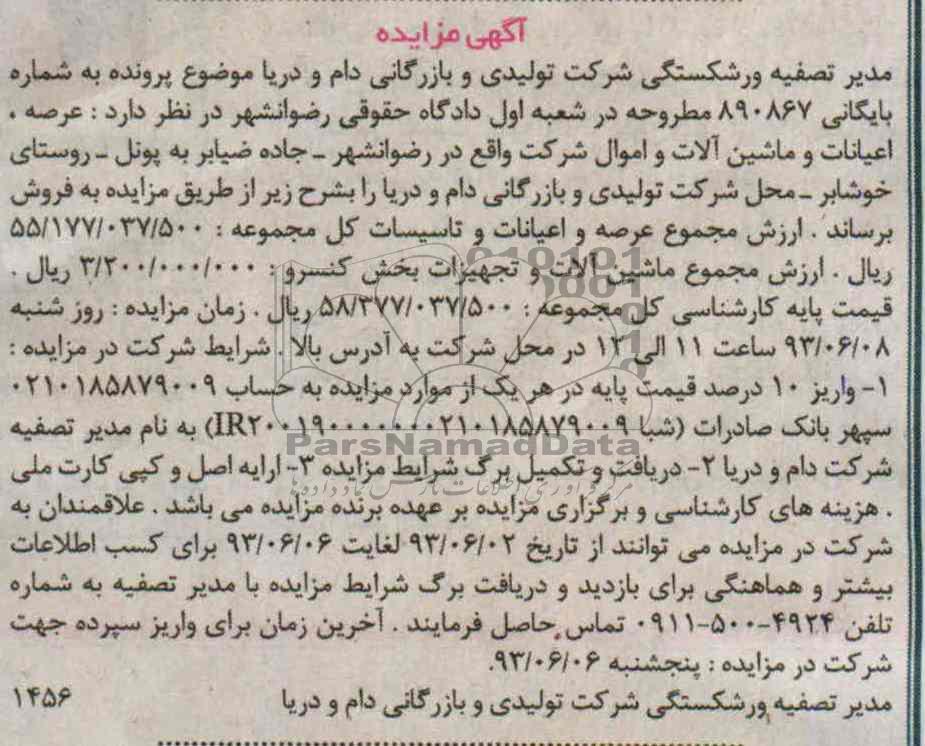 آگهی مزایده
مدیر تصفیه ورشکستگی شرکت تولیدی و بازرگانی دام و دریا موضوع پرونده به شماره
بایگانی ۸۹۰۸۶۷ مطروحه در شعبه اول دادگاه حقوقی رضوانشهر در نظر دارد : عرصه ،
اعیانات و ماشین آلات و اموال شرکت واقع در رضوانشهر ـ جاده ضیابر به پونل ـ روستای
خوشابر ـ محل شرکت تولیدی و بازرگانی دام و دریا را بشرح زیر از طریق مزایده به فروش
برساند . ارزش مجموع عرصه و اعیانات و تاسیسات کل مجموعه : ۵۵/۱۷۷/۰۳۷/۵۰۰
ریال . ارزش مجموع ماشین آلات و تجهیزات بخش کنسرو : ۳/۲۰۰/۰۰۰/۰۰۰ ریال .
قیمت پایه کارشناسی کل مجموعه : ۵۸/۳۷۷/۰۳۷/۵۰۰ ریال . زمان مزایده : روز شنبه
۹۳/۰۶/۰۸ ساعت ۱۱ الی ۱۲ در محل شرکت به آدرس بالا . شرایط شرکت در مزایده :
۱- واریز ۱۰ درصد قیمت پایه در هر یک از موارد مزایده به حساب ۰۲۱۰۱۸۵۸۷۹۰۰۹
سپهر بانک صادرات (شبا IR۲۰۰۱۹۰۰۰۰۰۰۰۰۲۱۰۱۸۵۸۷۹۰۰۹) به نام مدیر تصفیه
شرکت دام و دریا ۲- دریافت و تکمیل برگ شرایط مزایده ۳- ارایه اصل و کپی کارت ملی
. هزینه های کارشناسی و برگزاری مزایده بر عهده برنده مزایده می باشد . علاقمندان به
شرکت در مزایده می توانند از تاریخ ۹۳/۰۶/۰۲ لغایت ۹۳/۰۶/۰۶ برای کسب اطلاعات
بیشتر و هماهنگی برای بازدید و دریافت برگ شرایط مزایده با مدیر تصفیه به شماره
تلفن ۴۹۲۴-۵۰۰-۰۹۱۱ تماس حاصل فرمایند . آخرین زمان برای واریز سپرده جهت
شرکت در مزایده : پنجشنبه ۹۳/۰۶/۰۶.
مدیر تصفیه ورشکستگی شرکت تولیدی و بازرگانی دام و دریا ۱۴۵۶
ParsNamadData